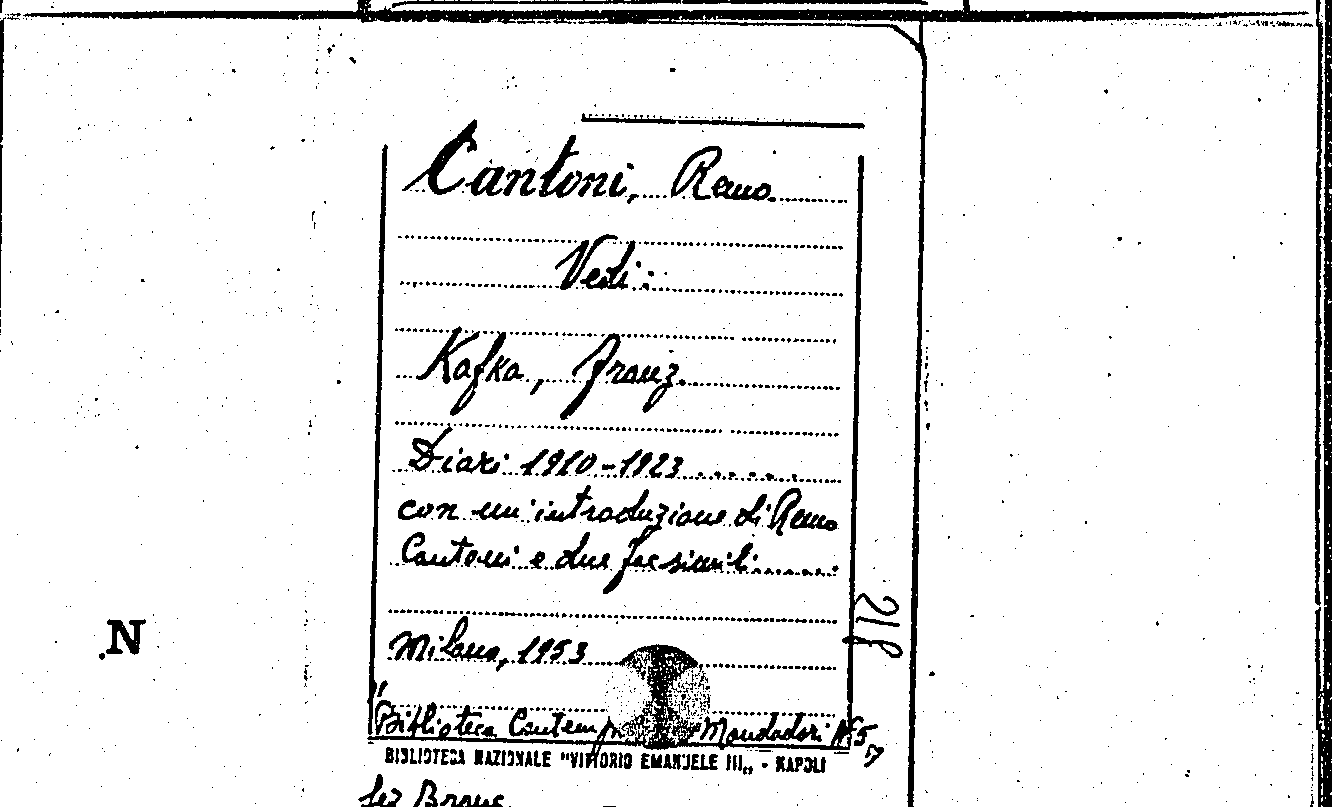 Cantoni, Remo
Vedi:
Kafka, Franz
Diari 1910-1923.......
con un'introduzione di Remo
Cantoni e due facsimili.......
218
N
Milano, 1953
"Biblioteca Mondadori
BIBLIOTECA NAZIONALE "VITTORIO EMANUELE III" - NAPOLI